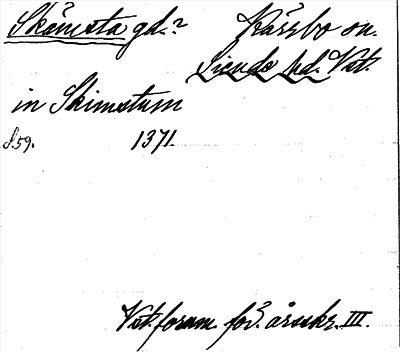 Skämsta gd.? Kärrbo sn.
Siende hd. Vst.
in Skimstum
S. 59. 1371.
Vst. fornm. för:s årsskr. III.